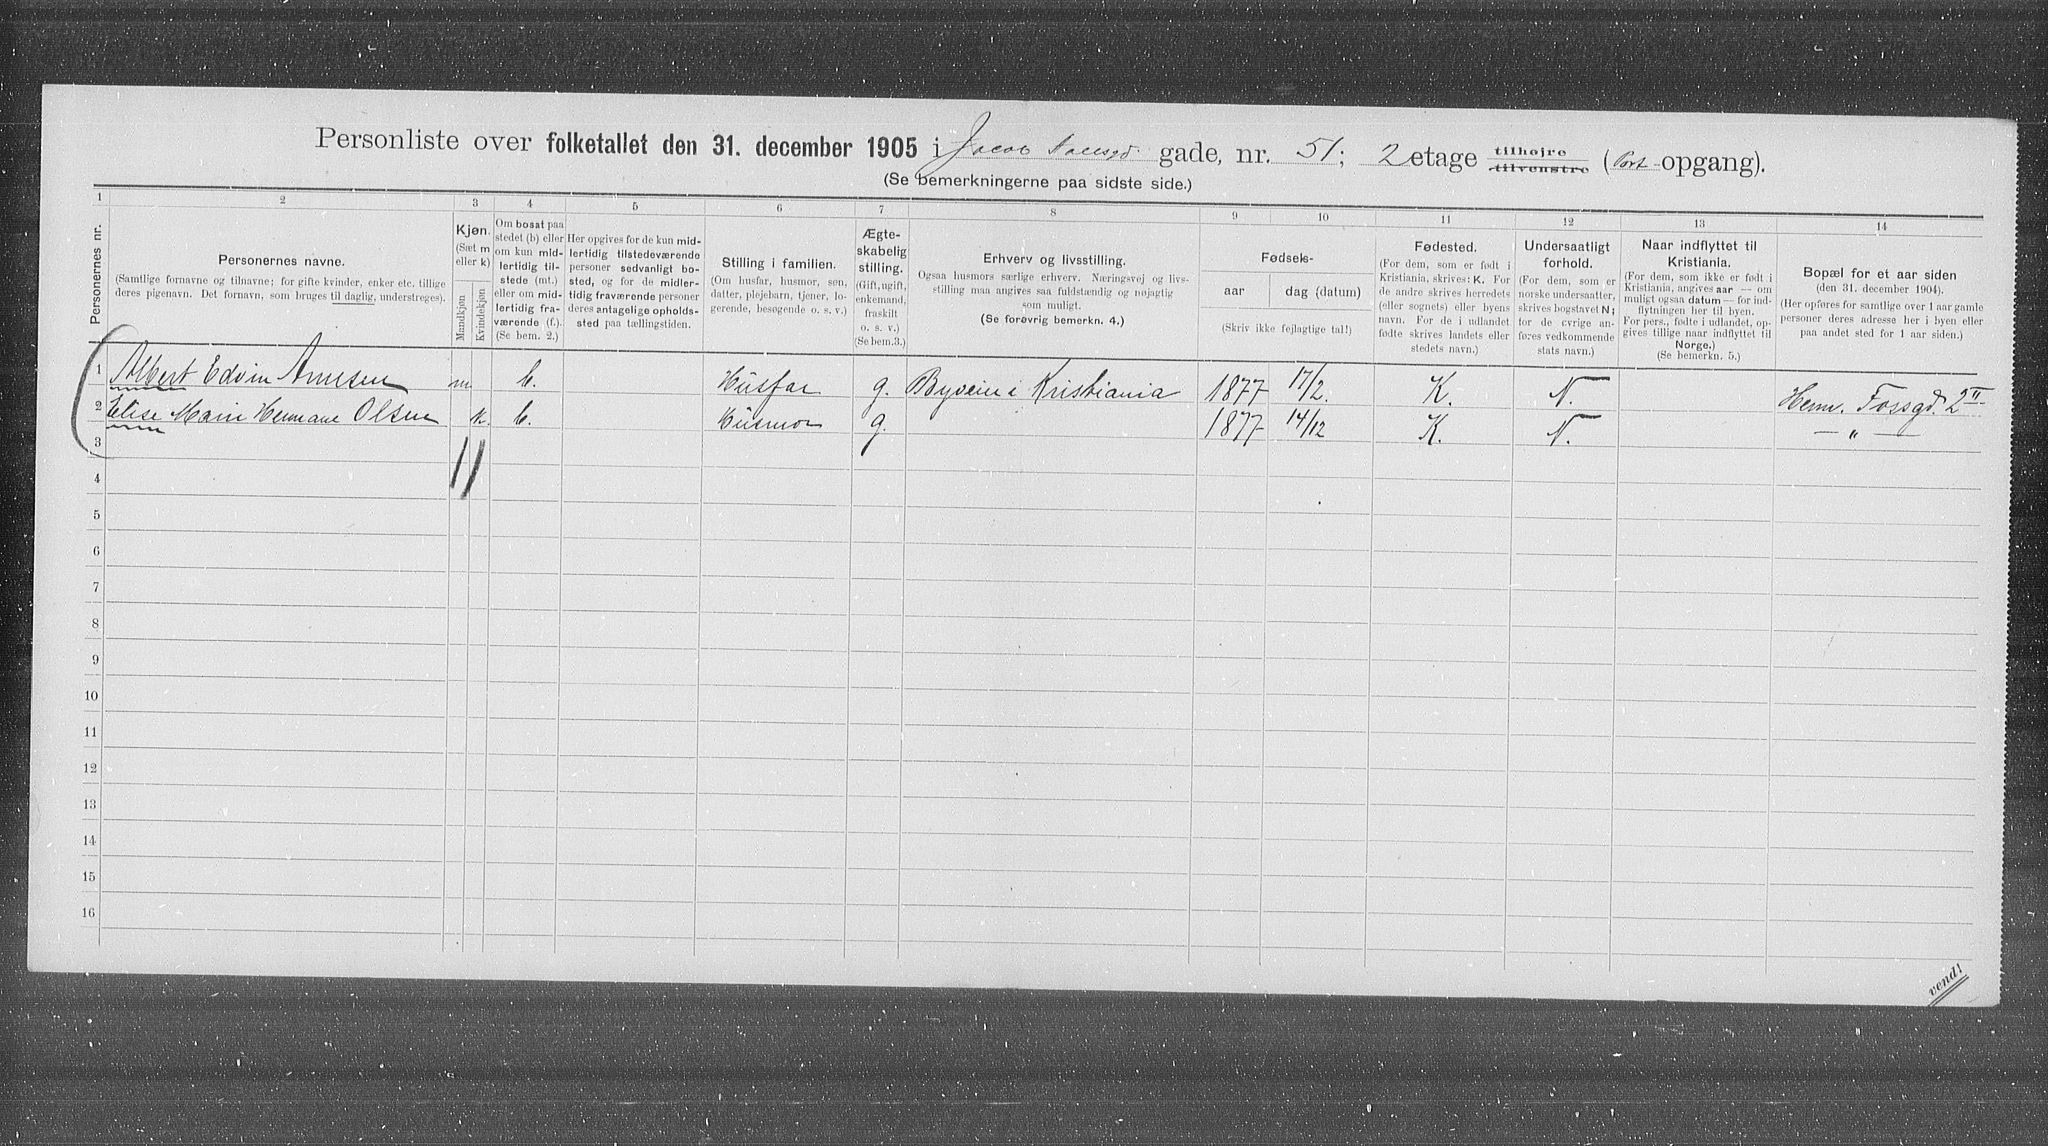 Personliste over folketallet den 31. december 1905 i Jacob Aallsgd gade, nr. 51; 2 etage tilhøjre tilvenstre (Port opgang).
(Se bemerkningerne paa sidste side.)
1 2 3 4 5 6 7 8 9 10 11 12 13 14
Personernes nr.
Personernes navne.
(Samtlige fornavne og tilnavne; for gifte kvinder, enker etc. tillige
deres pigenavn. Det fornavn, som bruges til daglig, understreges).
Kjøn.
(Sæt m
eller k)
Mandkjøn
Kvindekjøn
Om bosat paa
stedet (b) eller
om kun mid-
lertidig til-
stede (mt.)
eller om mid-
lertidig fra-
værende (f.).
(Se bem. 2.)
Her opgives for de kun mid-
lertidig tilstedeværende
personer sedvanligt bo-
sted, og for de midler-
tidig fraværende personer
deres antagelige opholds-
sted paa tællingstiden.
Stilling i familien.
(Om husfar, husmor, søn,
datter, plejebarn, tjener, lo-
gerende, besøgende o. s. v.)
Ægte-
skabelig
stilling.
(Gift, ugift,
enkemand,
fraskilt
o. s. v.)
(Se bem.3.)
Erhverv og livsstilling.
Ogsaa husmors særlige erhverv. Næringsvej og livs-
stilling maa angives saa fuldstændig og nøjagtig
som muligt.
(Se forøvrig bemerkn. 4.)
Fødsels-
aar
dag (datum)
(Skriv ikke fejlagtige tal!)
Fødested.
(For dem, som er født i
Kristiania, skrives: K. For
de andre skrives herredets
(eller sognets) eller byens
navn. For de i udlandet
fødte skrives landets eller
stedets navn.)
Undersaatligt
forhold.
(For dem, som er
norske undersaatter,
skrives bogstavet N;
for de øvrige an-
føres vedkommende
stats navn.)
Naar indflyttet til
Kristiania.
(For dem, som ikke er født i
Kristiania, angives aar — om
muligt ogsaa datum — for ind-
flytningen her til byen.
For pers., fødte i udlandet, op-
gives tillige naar indflyttet til
Norge.)
(Se bemerkn. 5.)
Bopæl for et aar siden
(den 31. december 1904).
(Her opføres for samtlige over 1 aar gamle
personer deres adresse her i byen eller
paa andet sted for 1 aar siden.)
1 Albert Edvin Arnesen m b. Husfar g. Byvein i Kristiania 1877 17/2. K. N. Henr. Fossgd. 2 II
2 Elise Marie Hermane Olsen k. b. Husmor g. 1877 14/12 K. N. — „ —
3
4
5
6
7
8
9
10
11
12
13
14
15
16
vend!